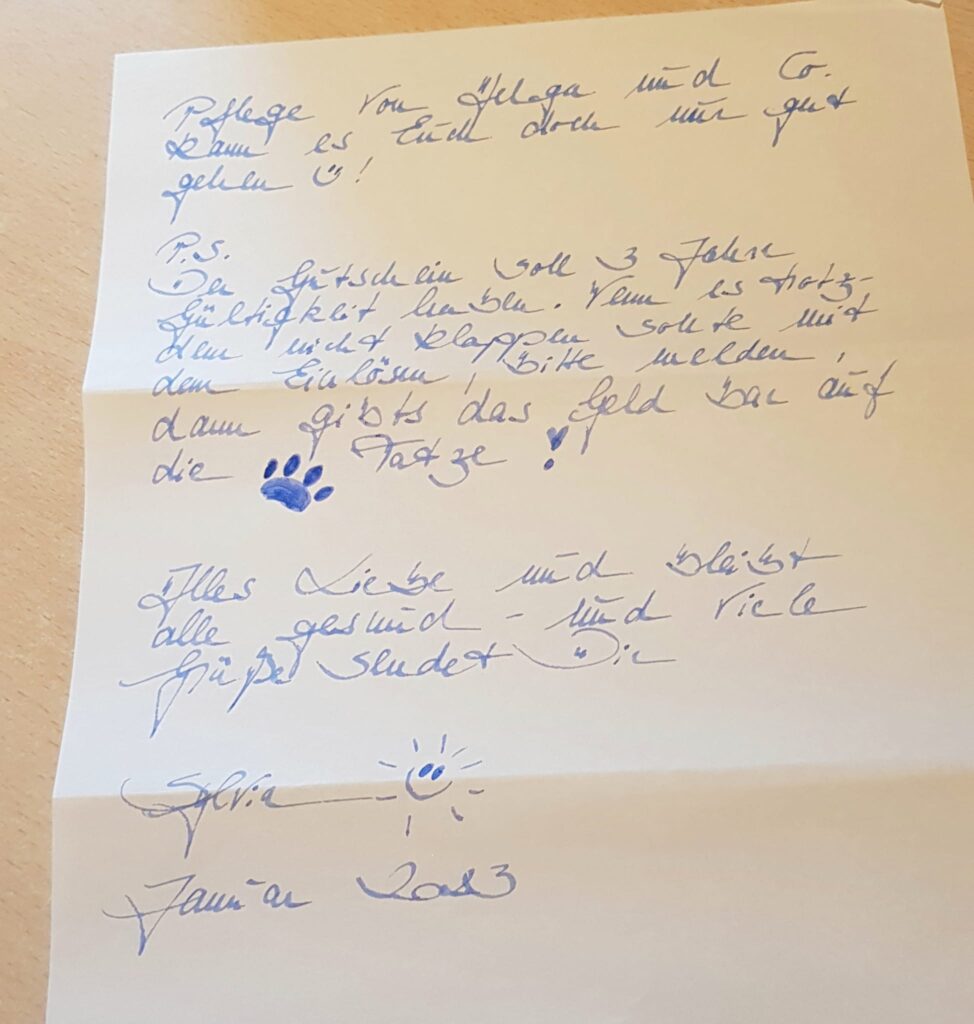 Pflege von Helga und Co.
kann es Euch doch nur gut
gehen !
P.S.
Der Gutschein soll 3 Jahre
Gültigkeit haben. Wenn es trotz-
dem nicht klappen sollte mit
dem Einlösen, bitte melden,
dann gibts das Geld bar auf
die Tatze !
Alles Liebe und bleibt
alle gesund - und viele
Grüße sendet Dir
Sylvia
Januar 2023